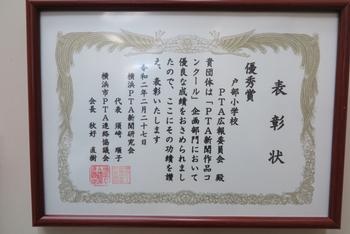 表彰状
優秀賞
戸部小学校
PTA広報委員会 殿
貴団体は「PTA新聞作品コ
ンクール」企画部門において
優良な成績をおさめられまし
たので、ここにその功績を讃
え、表彰いたします
令和二年二月二十七日
横浜PTA新聞研究会
代表 須崎 順子
横浜市PTA連絡協議会
会長 秋好 直樹